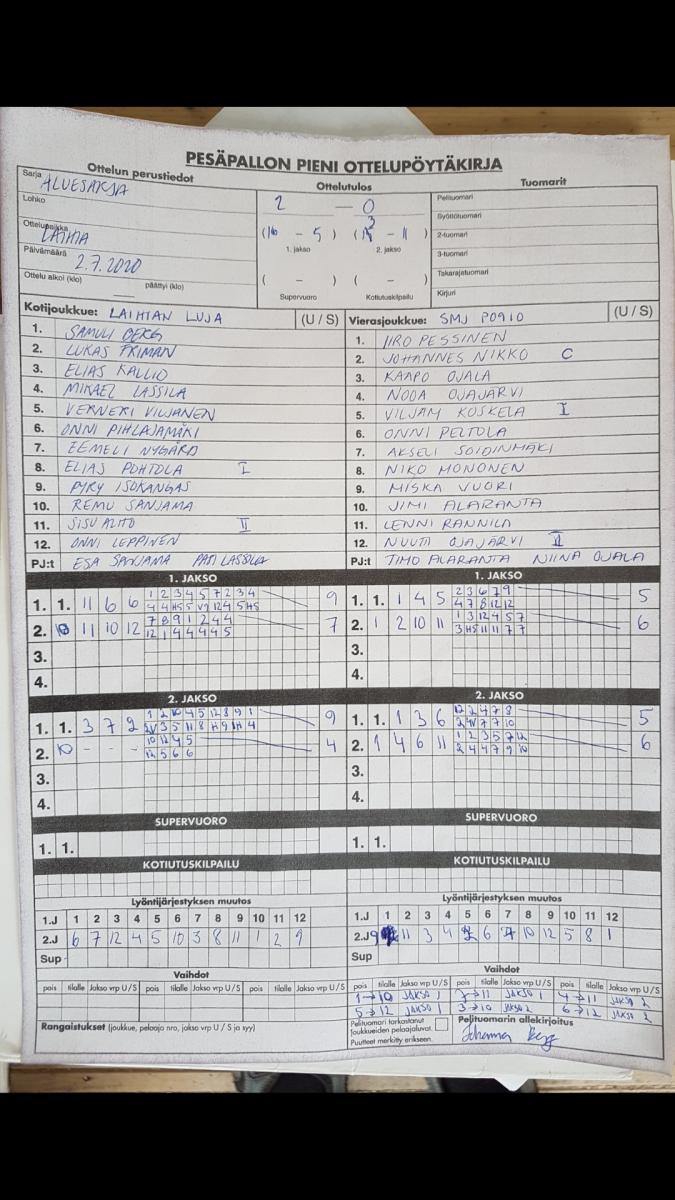 PESÄPALLON PIENI OTTELUPÖYTÄKIRJA
Ottelun perustiedot
Sarja ALUESARJA
Lohko
Ottelupaikka LAIHIA
Päivämäärä 2.7.2020
Ottelu alkoi (klo) päättyi (klo)
Ottelutulos
2 — 0
(16 - 5) (13 - 11)
1. jakso 2. jakso
( - ) ( - )
Supervuoro Kotiutuskilpailu
Tuomarit
Pelituomari
Syöttötuomari
2-tuomari
3-tuomari
Takarajatuomari
Kirjuri
Kotijoukkue: LAIHIAN LUJA (U / S)
1. SAMULI BERG
2. LUKAS FRIMAN
3. ELIAS KALLIO
4. MIKAEL LASSILA
5. VERNERI VILJANEN
6. ONNI PIHLAJAMÄKI
7. EEMELI NYGÅRD
8. ELIAS POHTOLA I
9. PYRY ISOKANGAS
10. REMU SANJAMA
11. SISU ALHO II
12. ONNI LEPPINEN
PJ:t ESA SANJAMA PATI LASSILA
Vierasjoukkue: SMJ PO910 (U / S)
1. IIRO PESSINEN
2. JOHANNES NIKKO C
3. KAAPO OJALA
4. NOOA OJAJÄRVI
5. VILJAM KOSKELA I
6. ONNI PELTOLA
7. AKSELI SOIDINMÄKI
8. NIKO MONONEN
9. MISKA VUORI
10. JIMI ALARANTA
11. LENNI RANNILA
12. NUUTI OJAJÄRVI II
PJ:t TIMO ALARANTA NIINA OJALA
1. JAKSO
1. 1. 11 6 6 1 2 3 4 5 7 2 3 4 9
4 4 H5 5 V9 12 4 5 H5
2. 10 11 10 12 7 8 9 1 2 4 4 7
12 1 4 4 4 4 5
3.
4.
1. JAKSO
1. 1. 1 4 5 2 3 6 7 9 5
4 7 8 12 12
2. 1 2 10 11 1 3 12 4 5 7 6
3 H5 11 11 7 7
3.
4.
2. JAKSO
1. 1. 3 7 2 1 2 10 4 5 12 8 9 1 9
2. 10 - - - 10 12 4 5 4
12 5 6 6
3.
4.
2. JAKSO
1. 1. 1 3 6 12 2 4 7 8 5
2. 1 4 6 11 1 2 3 5 7 12 6
2 4 4 7 9 10
3.
4.
SUPERVUORO
1. 1.
SUPERVUORO
1. 1.
KOTIUTUSKILPAILU
KOTIUTUSKILPAILU
Lyöntijärjestyksen muutos
1.J 1 2 3 4 5 6 7 8 9 10 11 12
2.J 6 7 12 4 5 10 3 8 11 1 2 9
Sup
Vaihdot
pois tilalle Jakso vrp U/S pois tilalle Jakso vrp U/S pois tilalle Jakso vrp U/S
Rangaistukset (joukkue, pelaaja nro, jakso vrp U / S ja syy)
Lyöntijärjestyksen muutos
1.J 1 2 3 4 5 6 7 8 9 10 11 12
2.J 9 11 3 4 2 6 7 10 12 5 8 1
Sup
Vaihdot
pois tilalle Jakso vrp U/S pois tilalle Jakso vrp U/S pois tilalle Jakso vrp U/S
1→10 JAKSO 1 →11 JAKSO 1 4→11 JAKSO 2
5→12 JAKSO 1 3→10 JAKSO 2 6→12 JAKSO 2
Pelituomari tarkastanut joukkueiden pelaajaluvat.
Puutteet merkitty erikseen.
Pelituomarin allekirjoitus
Johanna Berg